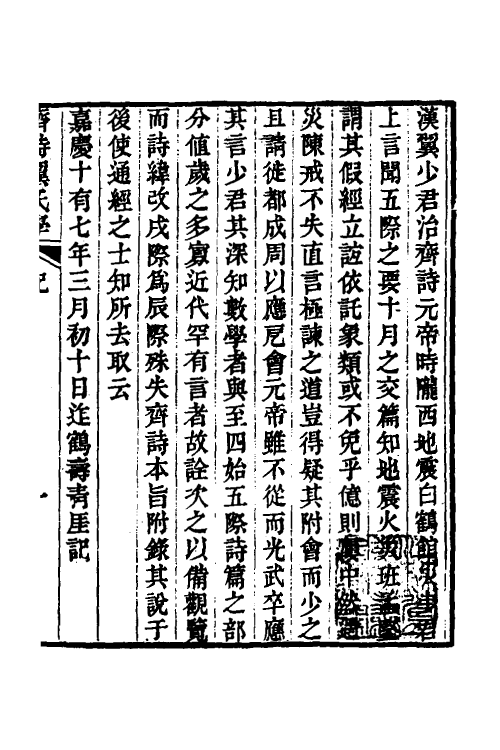 漢翼少君治齊詩元帝時隴西地震白鶴館災少君
上言聞五際之要十月之交篇知地震火災班孟堅
謂其假經立誼依託象類或不免乎億則屢中然遇
災陳戒不失直言極諫之道豈得疑其附會而少之
且請徙都成周以應戹會元帝雖不從而光武卒應
其言少君其深知數學者與至四始五際詩篇之部
分值歲之多寡近代罕有言者故詮次之以備觀覽
而詩緯改戌際爲辰際殊失齊詩本旨附錄其說于
後使通經之士知所去取云
嘉慶十有七年三月初十日迮鶴壽青厓記
齊詩翼氏學
記
一